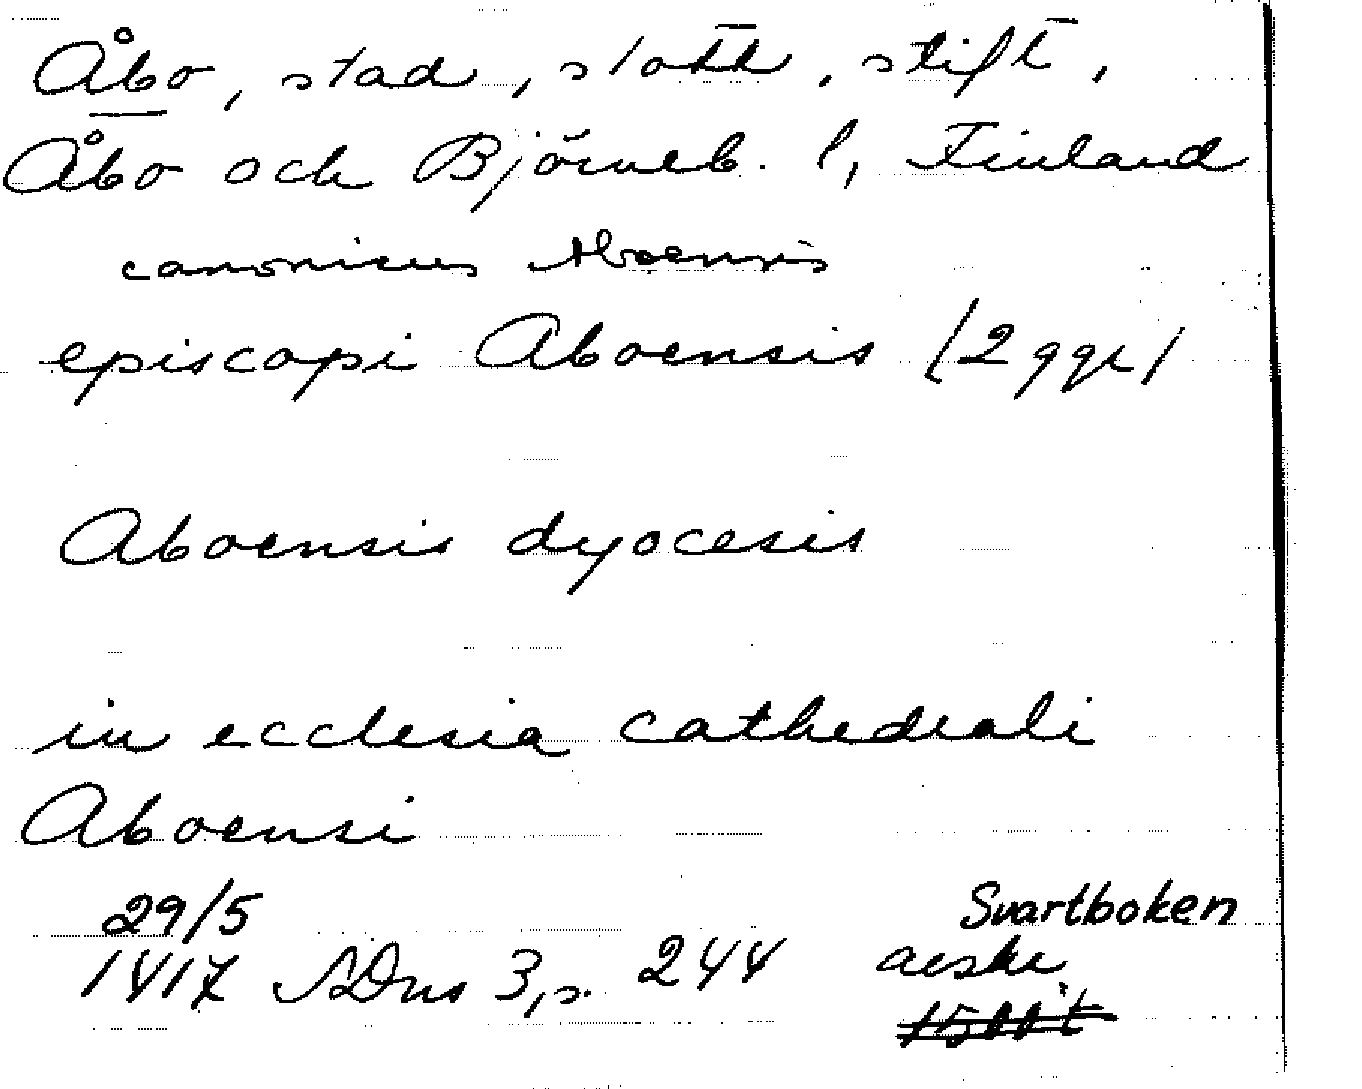 Åbo, stad, slott, stift,
Åbo och Björneb. l, Finland
canonicus Aboensis
episcopi Aboensis (2 ggr)
Aboensis dyocesis
in ecclesia cathedrali
Aboensi
29/5 Svartboken
1417 SDns 3, s. 244 avskr